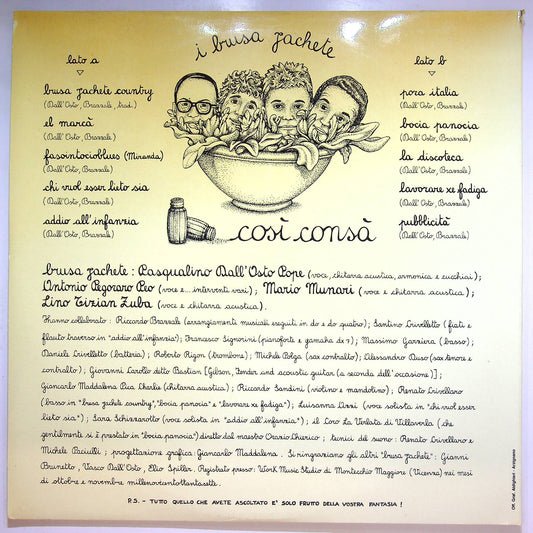 i brusa jachete
lato a
brusa jachete country
(Dall'Osto, Brazzale, trad.)
el marcà
(Dall'Osto, Brazzale)
fasointocioblues (Miranda)
(Dall'Osto, Brazzale)
chi vuol esser lieto sia
(Dall'Osto, Brazzale)
addio all'infanzia
(Dall'Osto, Brazzale)
lato b
pora italia
(Dall'Osto, Brazzale)
bocia panocia
(Dall'Osto, Brazzale)
la discoteca
(Dall'Osto, Brazzale)
lavorare xe fadiga
(Dall'Osto, Brazzale)
pubblicità
(Dall'Osto, Brazzale)
così consà
brusa jachete: Pasqualino Dall'Osto Pope (voce, chitarra acustica, armonica e cucchiai);
Antonio Pegoraro Pio (voce e... interventi vari); Mario Munari (voce e chitarra acustica);
Lino Tizian Zuba (voce e chitarra acustica).
Hanno collaborato: Riccardo Brazzale (arrangiamenti musicali eseguiti in do e do quatro); Santino Crivelletto (fiati e
flauto traverso in "addio all'infanzia"); Francesco Signorini (pianoforte e yamaha dx7); Massimo Garziera (basso);
Daniele Crivelletto (batteria); Roberto Rigon (trombone); Michele Polga (sax contralto); Alessandro Duso (sax tenore e
contralto); Giovanni Carollo detto Bastian [Gibson, Fender and acoustic guitar (a seconda dell'occasione)];
Giancarlo Maddalena Pica Charlie (chitarra acustica); Riccardo Sandini (violino e mandolino); Renato Crivellaro
(basso in "brusa jachete country", "bocia panocia" e "lavorare xe fadiga"); Luisanna (voce solista in "chi vuol esser
lieto sia"); Sara Schizzarotto (voce solista in "addio all'infanzia"); il Coro La Verlata di Villaverla (che
gentilmente si è prestato in "bocia panocia") diretto dal maestro Orazio Chierico; tecnici del suono: Renato Crivellaro e
Michele Paciulli; progettazione grafica: Giancarlo Maddalena. Si ringraziano gli altri "brusa jachete": Gianni
Brunetto, Vasco Dall'Osto, Elio Spiller. Registrato presso: Work Music Studio di Montecchio Maggiore (Vicenza) nei mesi
di ottobre e novembre millenovecentottantasette.
P.S. - TUTTO QUELLO CHE AVETE ASCOLTATO E' SOLO FRUTTO DELLA VOSTRA FANTASIA!
Off. Graf. Aldighieri - Arzignano